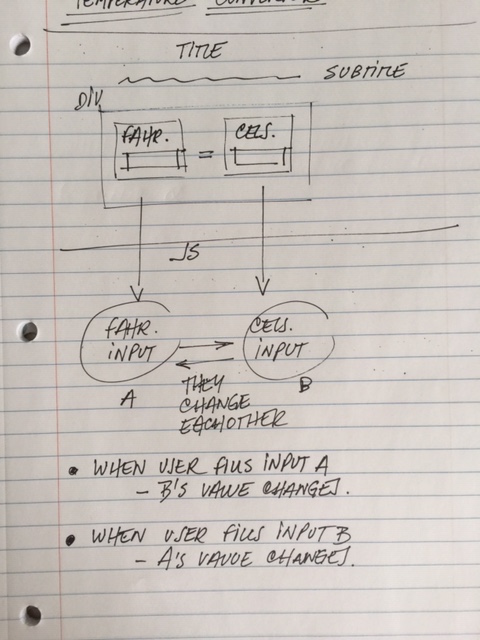 TEMPERATURE CONVERTER
TITLE
SUBTITLE
DIV
FAHR. = CELS.
JS
FAHR. INPUT
CELS. INPUT
A
B
THEY
CHANGE
EACHOTHER
• WHEN USER FILLS INPUT A
- B'S VALUE CHANGES.
• WHEN USER FILLS INPUT B
- A'S VALUE CHANGES.